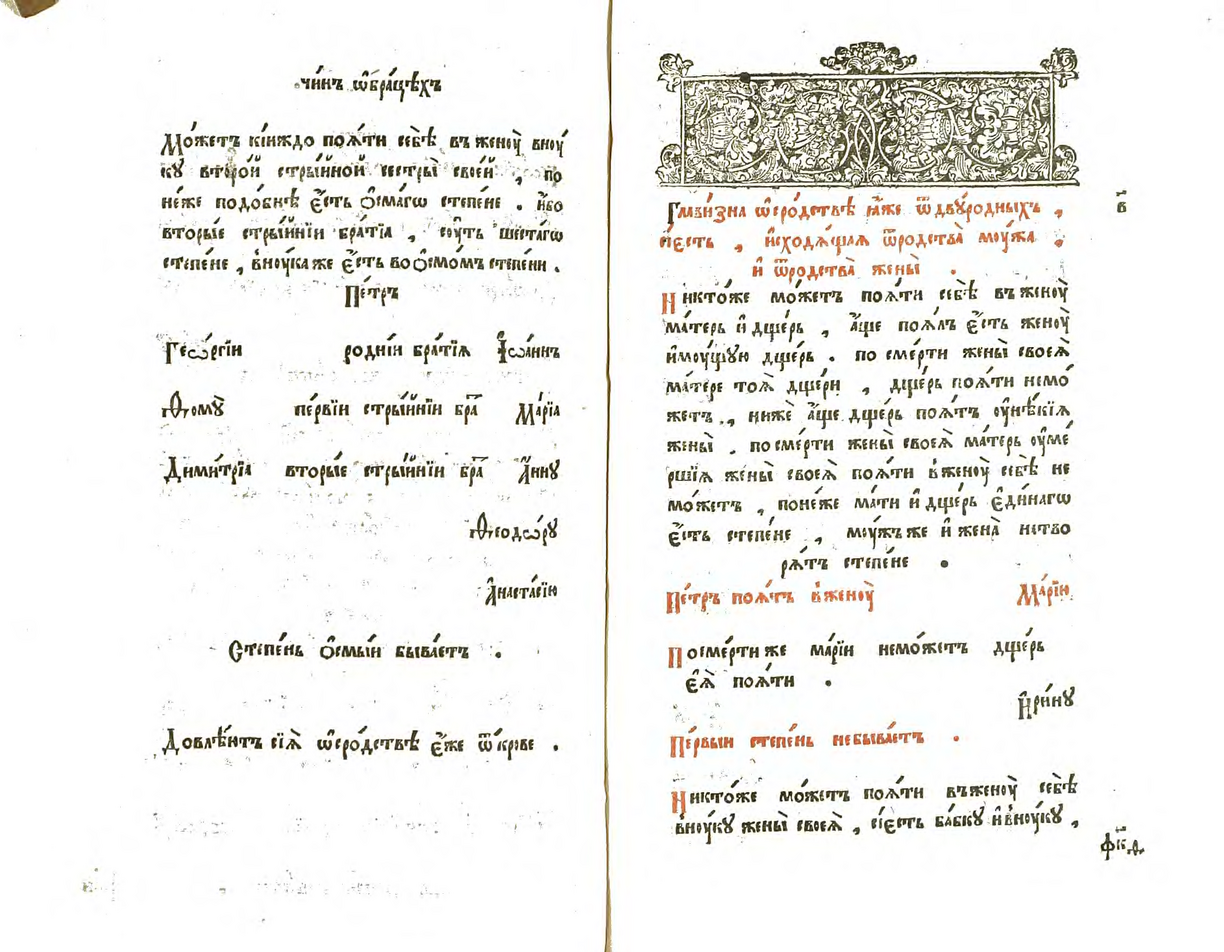 чи́нъ ѡ҆бра́цѣхъ
Мо́жетъ кі́иждо поѧ́ти себѣ̀ въ женоу̀ вноу́
ку второ́й стры́йной сестры̀ своеѝ , по
не́же подо́бнѣ є҆́сть ѻ҆сма́гѡ степе́не . и҆́бо
вторы́е стры́йнїи бра́тїѧ , соу́ть шеста́гѡ
степе́не , вноу́ка же є҆́сть во ѻ҆смо́мъ степени .
Пе́тръ
Геѡ́ргїи родні́и бра́тїѧ І҆ѡа́ннъ
Ѳ҆ому̀ пе́рвїи стры́йнїи бра́ Марі́ѧ
Дими́трїа вторы́е стры́йнїи бра́ А҆́нну
Ѳ҆еодѡ́ру
А҆настасі́ю
Степе́нь ѻ҆смы́и быва́етъ .
Довлѣ́итъ сїѧ̀ ѡ҆сро́дствѣ є҆́же ѿ кро́ве .
Глави́зна ѡ҆сро́дствѣ ꙗ҆́же ѿ двуро́дныхъ ,
сїе́сть , и҆сходѧ́щаѧ ѿ ро́дства̀ моу́жа ,
и҆ ѿ ро́дства̀ жены̀ .
Никто́же мо́жетъ поѧ́ти себѣ̀ въ женоу̀
ма́терь и҆ дще́рь , а҆́ще поѧ́лъ є҆́сть женоу̀
и҆моу́щую дще́рь . по сме́рти жены̀ своеѧ̀
ма́тере тоѧ̀ дще́ри , дще́рь поѧ́ти немо́
жетъ , нижѐ а҆́ще дще́рь поѧ́тъ оу҆ нѣ́кїѧ
жены̀ . по сме́рти жены̀ своеѧ̀ ма́терь оу҆ме́
ршїѧ жены̀ своеѧ̀ поѧ́ти в женоу̀ себѣ̀ не
мо́жетъ , поне́же ма́ти и҆ дще́рь є҆ди́нагѡ
є҆́сть степе́не , моу́жъ же и҆ жена̀ не тво
рѧ́тъ степе́не .
Пе́тръ поѧ́тъ в женоу̀ Марі́ю
По сме́рти же марі́и немо́жетъ дще́рь
є҆ѧ̀ поѧ́ти .
И҆ри́ну
Пе́рвыи степе́нь небыва́етъ .
Никто́же мо́жетъ поѧ́ти въ женоу̀ себѣ̀
вноу́ку жены̀ своеѧ̀ , сїе́сть ба́бку и҆ вноу́ку ,